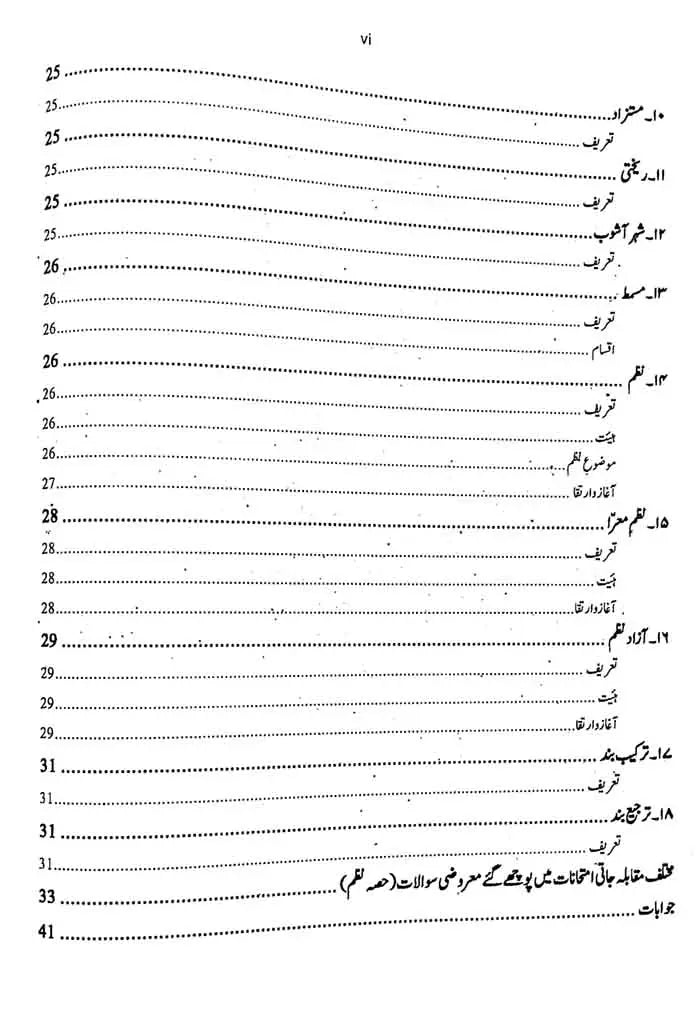 vi
۱۰۔ مستزاد ........ 25
تعریف ........ 25
۱۱۔ ریختی ........ 25
تعریف ........ 25
۱۲۔ شہر آشوب ........ 25
تعریف ........ 25
۱۳۔ مسمط ........ 26
تعریف ........ 26
اقسام ........ 26
۱۴۔ نظم ........ 26
تعریف ........ 26
ہیئت ........ 26
موضوعِ نظم ........ 26
آغاز و ارتقا ........ 27
۱۵۔ نظمِ معرّا ........ 28
تعریف ........ 28
ہیئت ........ 28
آغاز و ارتقا ........ 28
۱۶۔ آزاد نظم ........ 29
تعریف ........ 29
ہیئت ........ 29
آغاز و ارتقا ........ 29
۱۷۔ ترکیب بند ........ 31
تعریف ........ 31
۱۸۔ ترجیع بند ........ 31
تعریف ........ 31
مختلف مقابلہ جاتی امتحانات میں پوچھے گئے معروضی سوالات (حصہ نظم) ........ 33
جوابات ........ 41